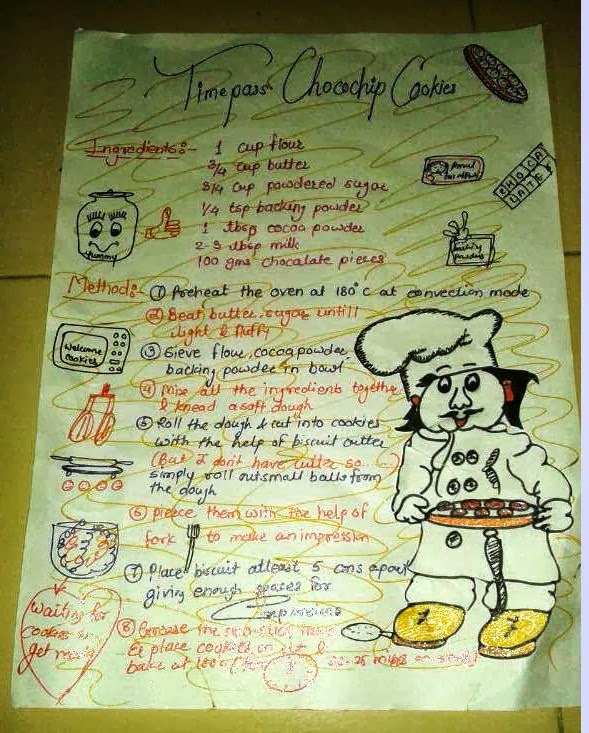 Timepass Chocochip Cookies
Ingredients:-
1 cup flour
3/4 cup butter
3/4 cup powdered sugar
1/4 tsp backing powder
1 tbsp cocoa powder
2-3 tbsp milk
100 gms chocalate pieces
CHOCA
LATE
Yummy
backing
powder
Method:- ① Preheat the oven at 180°c at convection mode
② Beat butter, sugar untill
light & fluffy
Welcome
Cookies
③ Sieve flour, cocoapowder,
backing powder in bowl
④ Mix all the ingredients together
& knead a soft dough
⑤ Roll the dough & cut into cookies
with the help of biscuit cutter
(But I don't have cutter so.....)
simply roll out small balls from
the dough
⑥ pierce them with the help of
fork to make an impression
⑦ Place biscuit atleast 5 cms apart
giving enough spaces for
Expansions
⑧ Grease the non-stick
& place cookies on it &
bake at 180°c
Waiting for
cookies to
get ready